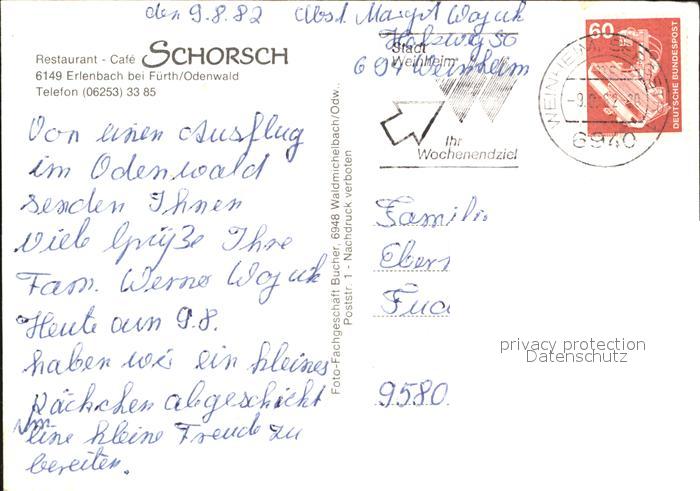 den 9.8.82 Abst. Margot Wojuk
Holzweg 50
694 Weinheim
Restaurant - Café SCHORSCH
6149 Erlenbach bei Fürth/Odenwald
Telefon (06253) 33 85
Von einen Ausflug
im Odenwald
senden Ihnen
viele Grüße Ihre
Fam. Werner Wojuk
Heute am 9.8.
haben wir ein kleines
Päckchen abgeschickt
um
eine kleine Freude zu
bereiten.
Foto-Fachgeschäft Bucher, 6948 Waldmichelbach/Odw.
Poststr. 1 - Nachdruck verboten
Stadt
Weinheim
Ihr
Wochenendziel
WEINHEIM
6940
60
DEUTSCHE BUNDESPOST
Familie
Ebers
Fuc
9580
privacy protection
Datenschutz